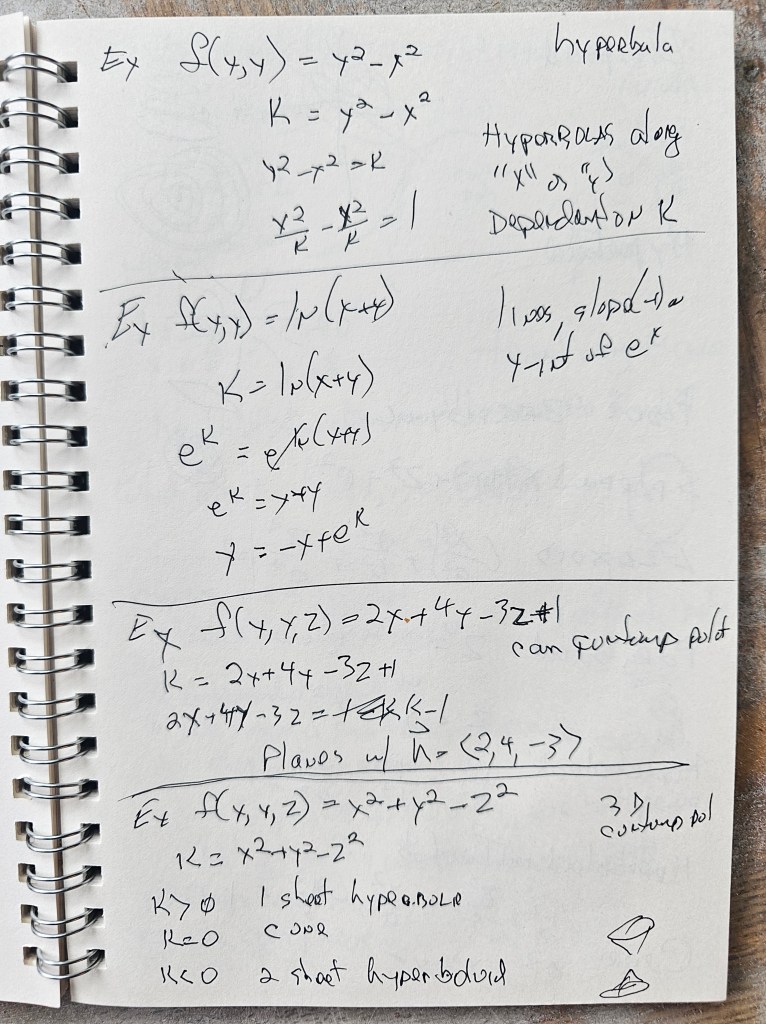 Ex f(x,y) = y² - x² hyperbula
K = y² - x²
y² - x² = K
HyperBOLAS along
"x" or "y"
y²/K - x²/K = 1
Dependant ON K
Ex f(x,y) = lN(x+y)
lines, slope -1 a
y-int of e^K
K = lN(x+y)
e^K = e^lN(x+y)
e^K = x+y
y = -x+e^K
Ex f(x,y,z) = 2x+4y-3z+1
can contour plot
K = 2x+4y-3z+1
2x+4y-3z = K-1
Planes w/ n = <2,4,-3>
Ex f(x,y,z) = x²+y²-z²
3D
contour plot
K = x²+y²-z²
K>0 1 sheet hyperbole
K=0 cone
K<0 2 sheet hyperboloid